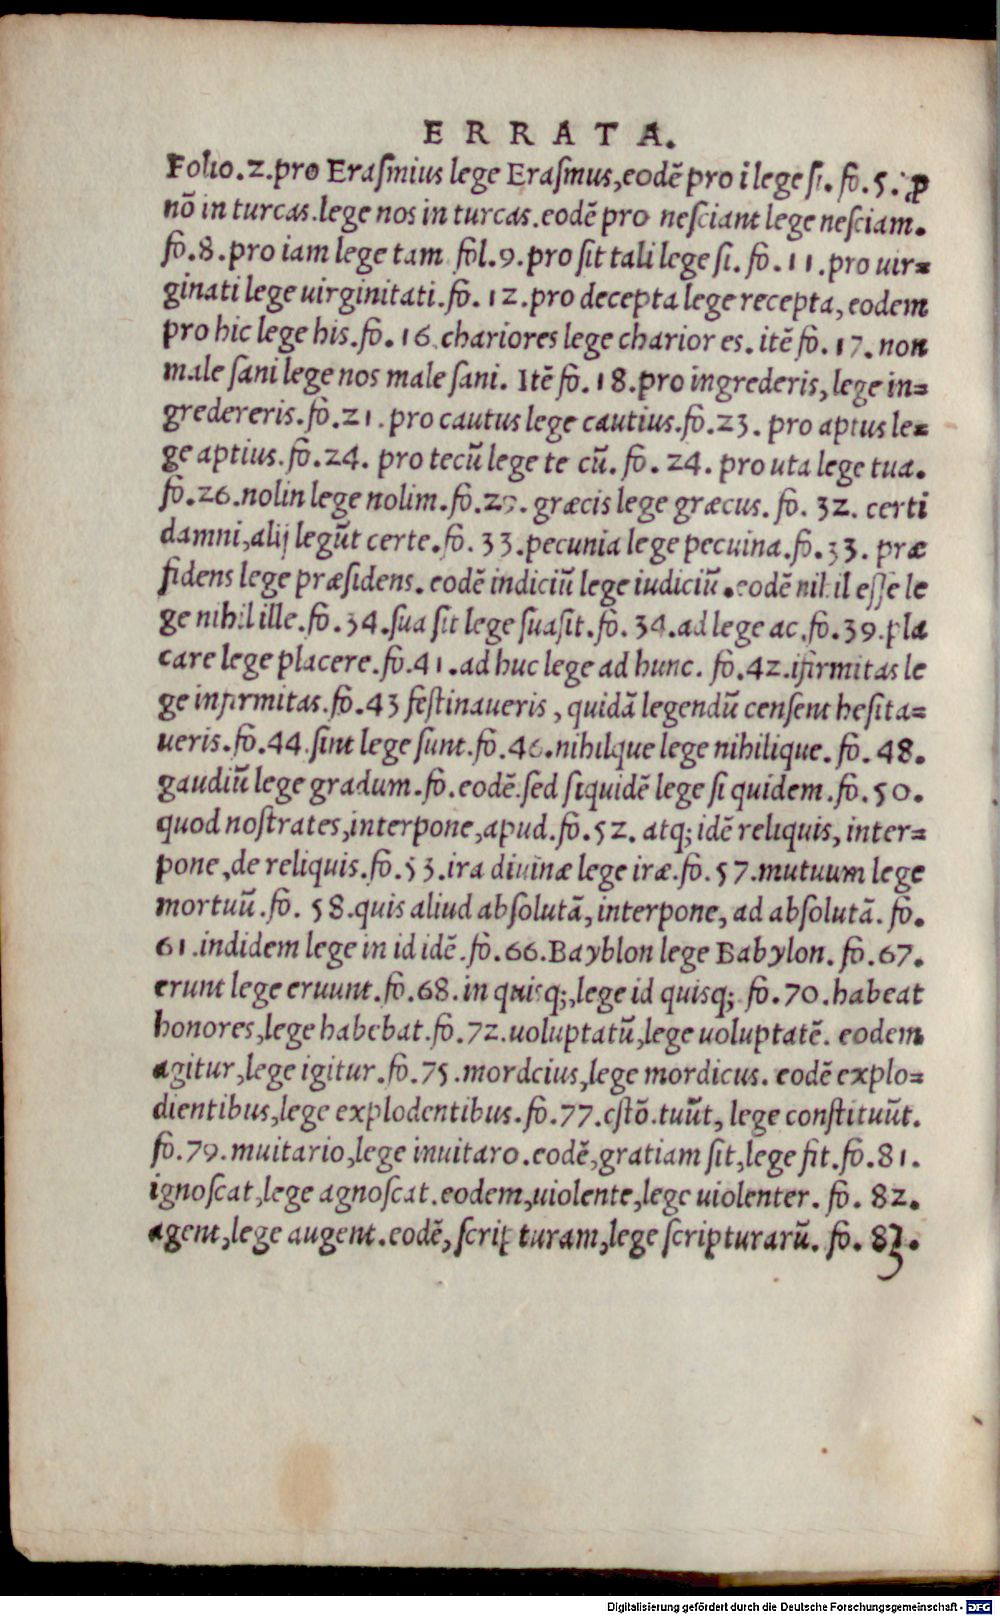 ERRATA.
Folio.2.pro Eraſmius lege Eraſmus,eodē pro ī lege ſi. fo.5. ꝓ
nō in turcas.lege nos in turcas.eodē pro neſciant lege neſciam.
fo.8.pro iam lege tam fol.9.pro ſit tali lege ſi. fo.11.pro uir=
ginati lege uirginitati.fo.12.pro decepta lege recepta, eodem
pro hic lege his.fo.16.chariores lege charior es. itē fo.17.non
male ſani lege nos male ſani. Itē fo.18.pro ingrederis, lege in=
gredereris.fo.21.pro cautus lege cautius.fo.23. pro aptus le=
ge aptius.fo.24. pro tecū lege te cū. fo. 24. pro uta lege tua.
fo.26.nolin lege nolim.fo.29. græcis lege græcus. fo. 32. certi
damni,alij legūt certe.fo. 33.pecunia lege pecuina.fo.33. præ
fidens lege præſidens. eodē indiciū lege iudiciū.eodē nihil eſſe le
ge nihil ille.fo.34.ſua ſit lege ſuaſit.fo.34.ad lege ac.fo.39.pla
care lege placere.fo.41.ad huc lege ad hunc. fo.42.ifirmitas le
ge infirmitas.fo.43 feſtinaueris, quidā legendū cenſent heſita=
ueris.fo.44.ſint lege ſunt.fo.46.nihilque lege nihilique. fo. 48.
gaudiū lege gradum.fo.eodē.ſed ſiquidē lege ſi quidem.fo.50.
quod noſtrates,interpone,apud.fo.52. atq; idē reliquis, inter=
pone,de reliquis.fo.53.ira diuinæ lege iræ.fo.57.mutuum lege
mortuū.fo. 58.quis aliud abſolutā, interpone, ad abſolutā. fo.
61.indidem lege in id idē.fo.66.Bayblon lege Babylon. fo.67.
erunt lege eruunt.fo.68.in quisq;,lege id quisq; fo.70.habeat
honores,lege habebat.fo.72.uoluptatū,lege uoluptatē. eodem
agitur,lege igitur.fo.75.mordcius,lege mordicus. eodē explo=
dientibus,lege explodentibus.fo.77.cſtō.tuūt, lege conſtituūt.
fo.79.muitario,lege inuitaro.eodē,gratiam ſit,lege fit.fo.81.
ignoſcat,lege agnoſcat.eodem,uiolente,lege uiolenter. fo. 82.
agent,lege augent.eodē, ſcrip turam,lege ſcripturarū. fo. 83.
Digitalisierung gefördert durch die Deutsche Forschungsgemeinschaft - DFG